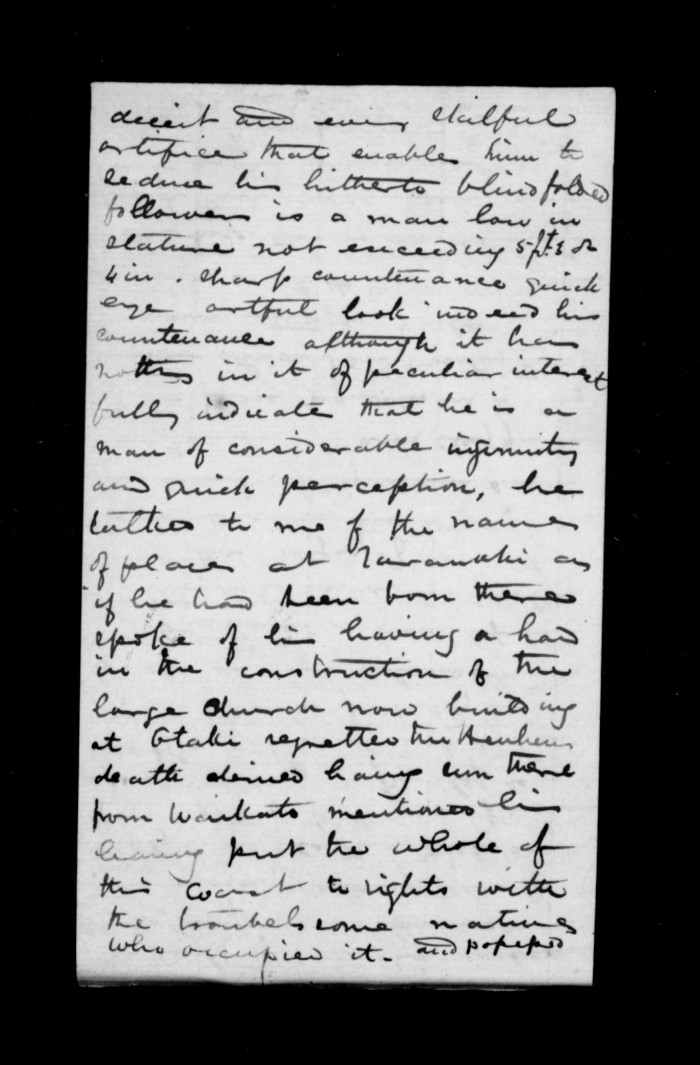 deceit and every skilful
artifice that enables him to
seduce his hitherto blindfolded
followers is a man low in
stature not exceeding 5 ft. 3 or
4 in. sharp countenance quick
eye artful look indeed his
countenance although it has
nothing in it of peculiar interest
fully indicate that he is a
man of considerable ingenuity
and quick perception, he
talked to me of the names
of places at Taranaki as
if he had been born there
spoke of his having a hand
in the construction of the
large Church now building
at Otaki regretted
death denied having come there
from Waikato mentioned his
having put the whole of
this coast to rights with
the troubelsome natives
who occupied it. and